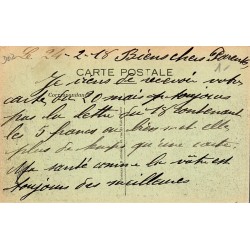 Le 24-2-18 Biens chers Parents
CARTE POSTALE
Je viens de recevoir votre
carte du 20 mais toujours
Correspondance
pas la lettre du 18 contenant
les 5 francs au bien met elle
plus de temps qu'une carte
Ma santé comme la vôtre est
toujours des meilleures